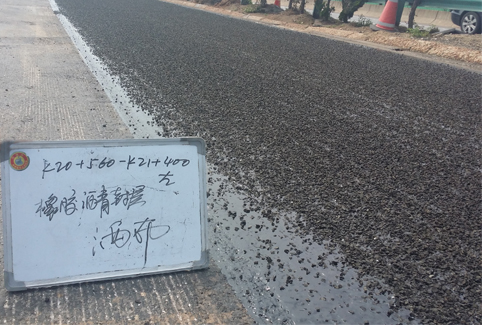 K20+560-K21+400
左
橡胶沥青封层
洒布